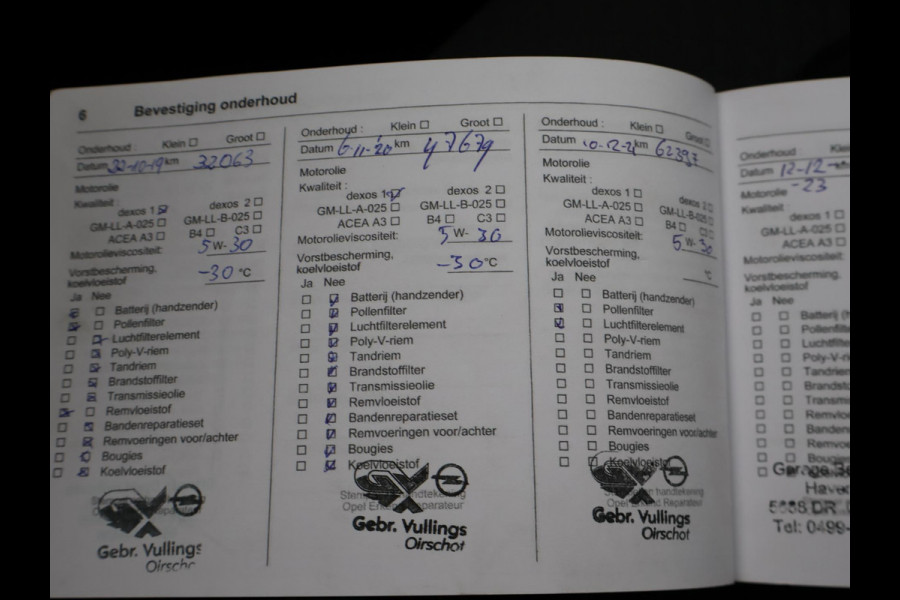 6 Bevestiging onderhoud
Onderhoud : Klein Groot
Datum km 32063
Motorolie
Kwaliteit :
dexos 1 dexos 2
GM-LL-A-025 GM-LL-B-025
ACEA A3 B4 C3
Motorolieviscositeit: 5 W- 30
Vorstbescherming,
koelvloeistof -30 °C
Ja Nee
Batterij (handzender)
Pollenfilter
Luchtfilterelement
Poly-V-riem
Tandriem
Brandstoffilter
Transmissieolie
Remvloeistof
Bandenreparatieset
Remvoeringen voor/achter
Bougies
Koelvloeistof
Gebr. Vullings
Oirschot
Onderhoud : Klein Groot
Datum 6-11-20 km 47679
Motorolie
Kwaliteit :
dexos 1 dexos 2
GM-LL-A-025 GM-LL-B-025
ACEA A3 B4 C3
Motorolieviscositeit: 5 W- 30
Vorstbescherming,
koelvloeistof -30 °C
Ja Nee
Batterij (handzender)
Pollenfilter
Luchtfilterelement
Poly-V-riem
Tandriem
Brandstoffilter
Transmissieolie
Remvloeistof
Bandenreparatieset
Remvoeringen voor/achter
Bougies
Koelvloeistof
Gebr. Vullings
Oirschot
Onderhoud : Klein Groot
Datum 10-12-21 km 62397
Motorolie
Kwaliteit :
dexos 1 dexos 2
GM-LL-A-025 GM-LL-B-025
ACEA A3 B4 C3
Motorolieviscositeit: 5 W- 30
Vorstbescherming,
koelvloeistof °C
Ja Nee
Batterij (handzender)
Pollenfilter
Luchtfilterelement
Poly-V-riem
Tandriem
Brandstoffilter
Transmissieolie
Remvloeistof
Bandenreparatieset
Remvoeringen voor/achter
Bougies
Koelvloeistof
Gebr. Vullings
Oirschot
Onderhoud : Klei
Datum 12-12
Motorolie -23
Kwaliteit :
dexos 1
GM-LL-A-025
ACEA A3
Motorolieviscositeit:
Vorstbescherming,
koelvloeistof
Ja Nee
Batterij (h
Pollenfilte
Luchtfilte
Poly-V-ri
Tandriem
Brandsto
Transmis
Remvloei
Banden
Remvoe
Bougies
Garage
Have
DR
Tel: 0499-